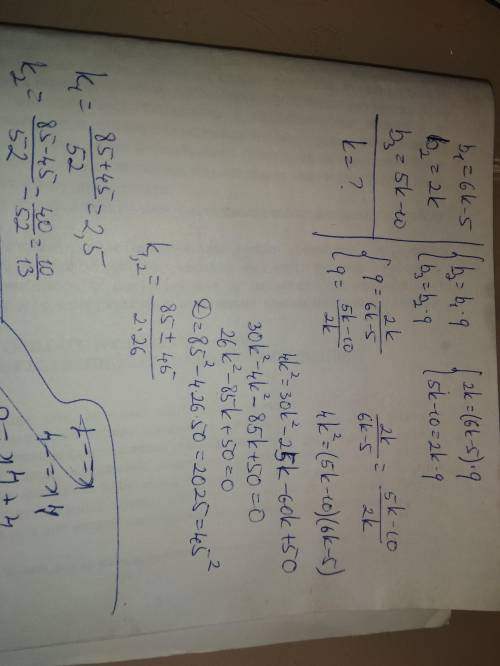 b₁ = 6k-5
b₂ = 2k
b₃ = 5k-10
k = ?
{ b₂ = b₁·q
{ b₃ = b₂·q
{ 2k = (6k-5)·q
{ 5k-10 = 2k·q
{ q = 2k/(6k-5)
{ q = (5k-10)/2k
2k/(6k-5) = (5k-10)/2k
4k² = (5k-10)(6k-5)
4k² = 30k² - 25k - 60k + 50
30k² - 4k² - 85k + 50 = 0
26k² - 85k + 50 = 0
D = 85² - 4·26·50 = 2025 = 45²
k₁,₂ = (85 ± 45)/(2·26)
k₁ = (85+45)/52 = 2,5
k₂ = (85-45)/52 = 40/52 = 10/13
4+4x=0
4x=-4